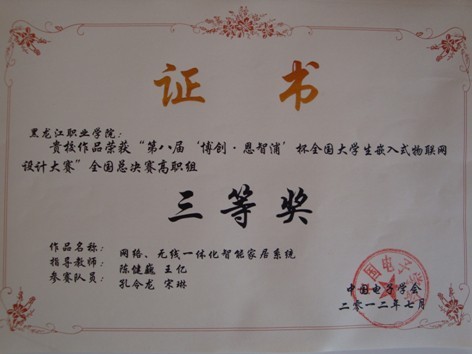 证书
黑龙江职业学院：
贵校作品荣获“第八届‘博创·恩智浦’杯全国大学生嵌入式物联网
设计大赛”全国总决赛高职组
三等奖
作品名称： 网络、无线一体化智能家居系统
指导教师： 陈健巍 王亿
参赛队员： 孔令龙 宋琳
中国电子学会
二零一二年七月